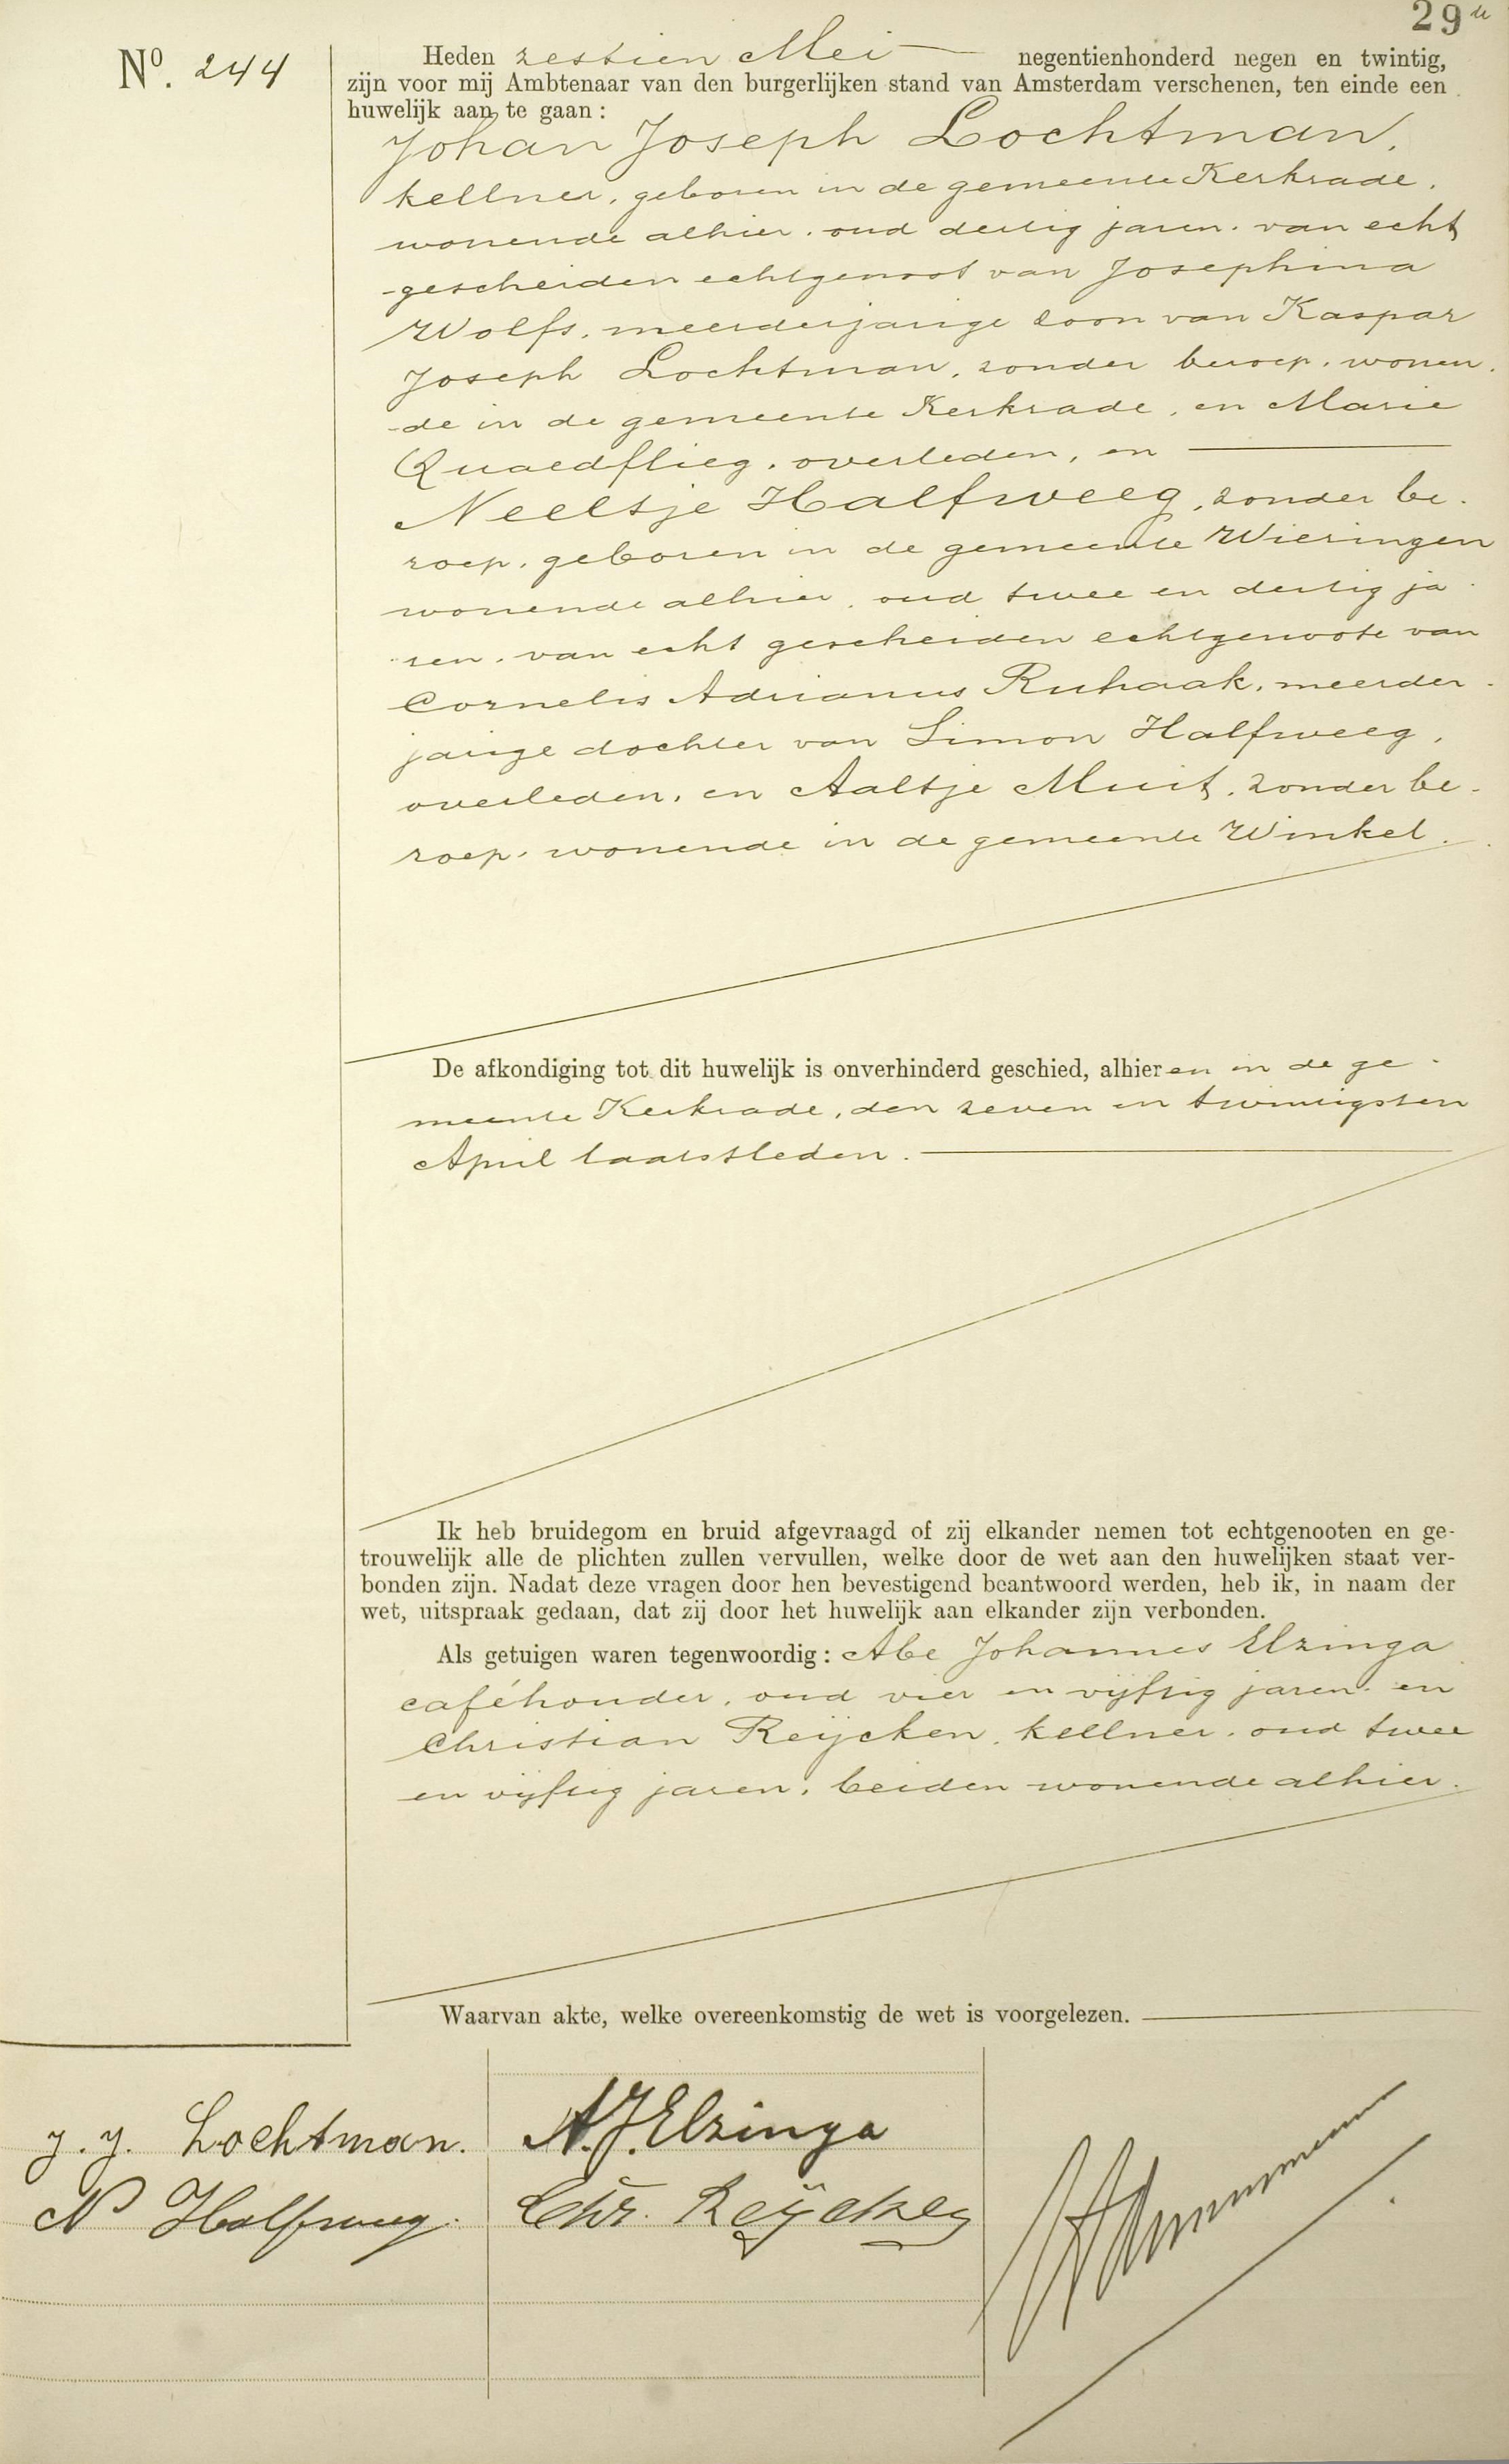 29
Nº. 244
Heden zestien Mei negentienhonderd negen en twintig,
zijn voor mij Ambtenaar van den burgerlijken stand van Amsterdam verschenen, ten einde een
huwelijk aan te gaan:
Johan Joseph Lochtman,
kellner, geboren in de gemeente Kerkrade,
wonende alhier, oud dertig jaren, van echt
gescheiden echtgenoot van Josephina
Wolfs, meerderjarige zoon van Kaspar
Joseph Lochtman, zonder beroep, wonen-
de in de gemeente Kerkrade, en Marie
Quaedflieg, overleden, en
Neeltje Halfweeg, zonder be-
roep, geboren in de gemeente Wieringen
wonende alhier, oud twee en dertig ja-
ren, van echt gescheiden echtgenoote van
Cornelis Adrianus Ruhaak, meerder-
jarige dochter van Simon Halfweeg,
overleden, en Aaltje Muit, zonder be-
roep, wonende in de gemeente Winkel.
De afkondiging tot dit huwelijk is onverhinderd geschied, alhier en in de ge-
meente Kerkrade, den zeven en twintigsten
April laatstleden.
Ik heb bruidegom en bruid afgevraagd of zij elkander nemen tot echtgenooten en ge-
trouwelijk alle de plichten zullen vervullen, welke door de wet aan den huwelijken staat ver-
bonden zijn. Nadat deze vragen door hen bevestigend beantwoord werden, heb ik, in naam der
wet, uitspraak gedaan, dat zij door het huwelijk aan elkander zijn verbonden.
Als getuigen waren tegenwoordig: Abe Johannes Elzinga
caféhouder, oud vier en vijftig jaren, en
Christian Reijcken, kellner, oud twee
en vijftig jaren, beiden wonende alhier.
Waarvan akte, welke overeenkomstig de wet is voorgelezen.
J. J. Lochtman.
N Halfweeg.
A. J. Elzinga
Chr. Reÿcken